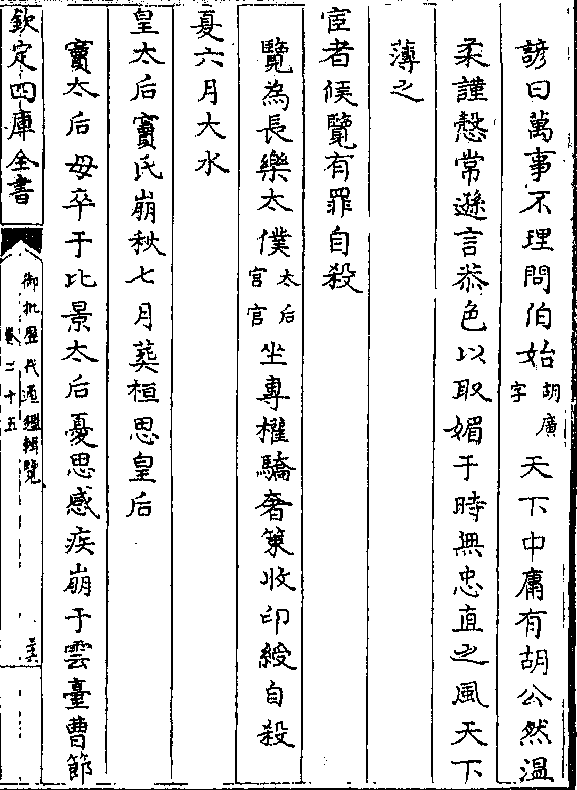 諺曰萬事不理問伯始胡廣字天下中庸有胡公然温
柔謹慤常遜言恭色以取媚于時無忠直之風天下
薄之
宦者侯覽有罪自殺
覽為長樂太僕太后宮官坐專權驕奢策收印綬自殺
夏六月大水
皇太后竇氏崩秋七月葬桓思皇后
竇太后母卒于比景太后憂思感疾崩于雲臺曹節
欽定四庫全書
御批歷代通鑑輯覽
卷二十五